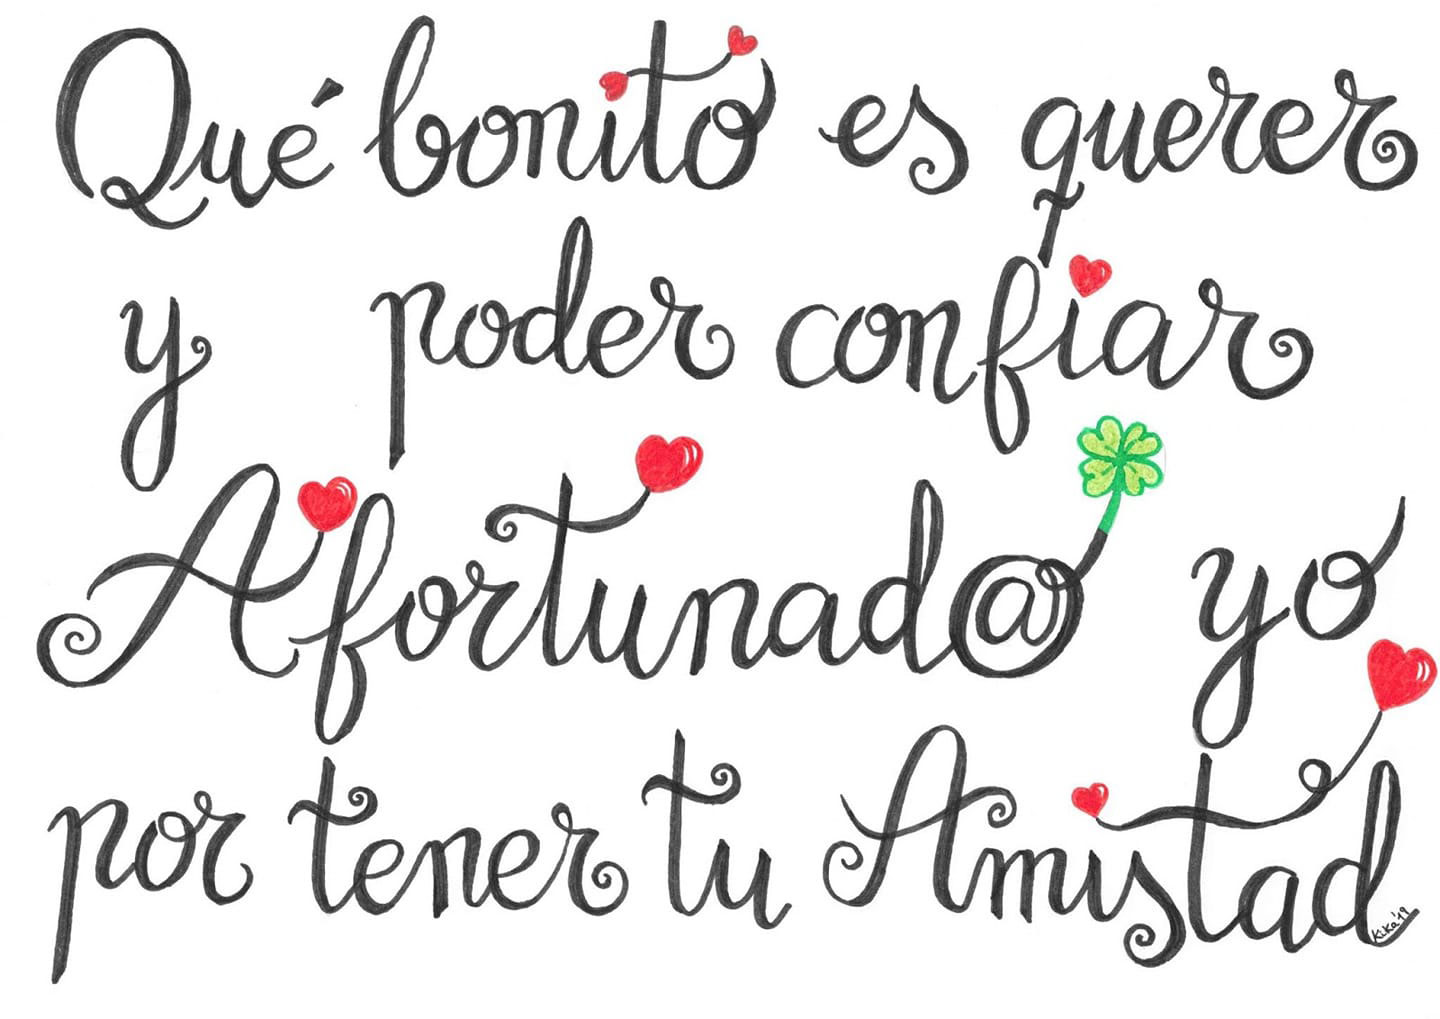 Qué bonito es querer
y poder confiar
Afortunad@ yo
por tener tu Amistad
Kika'19